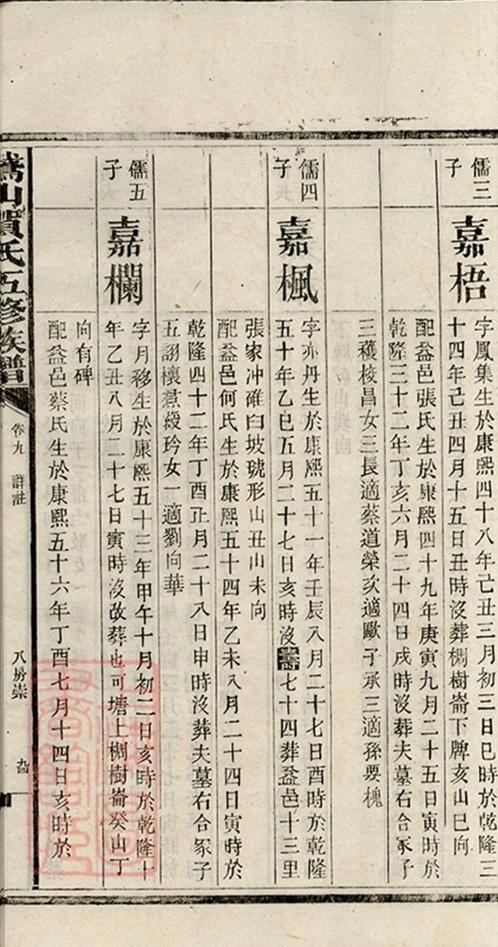 儒三子
嘉梧
字鳳集生於康熙四十八年己丑三月初三日巳時於乾隆三
十四年己丑四月十五日丑時沒葬棡樹崙下牌亥山巳向
配益邑張氏生於康熙四十九年庚寅九月二十五日寅時於
乾隆三十二年丁亥六月二十四日戌時沒葬夫墓右合冢子
三穫梭昌女三長適蔡道榮次適歐子承三適孫要槐
儒四子
嘉楓
字亦丹生於康熙五十一年壬辰八月二十七日酉時於乾隆
五十年乙巳五月二十七日亥時沒壽七十四葬益邑十三里
張家冲碓臼坡琥形山丑山未向
配益邑何氏生於康熙五十四年乙未八月二十四日寅時於
乾隆四十二年丁酉正月二十八日申時沒葬夫墓右合冢子
五詡懷煮緞玲女一適劉向華
儒五子
嘉欄
字月移生於康熙五十三年甲午十月初二日亥時於乾隆十
年乙丑八月二十七日寅時沒改葬也可塘上棡樹崙癸山丁
向有碑
配益邑蔡氏生於康熙五十六年丁酉七月十四日亥時於
山賀氏五修族譜
卷九 詳註
八房崇